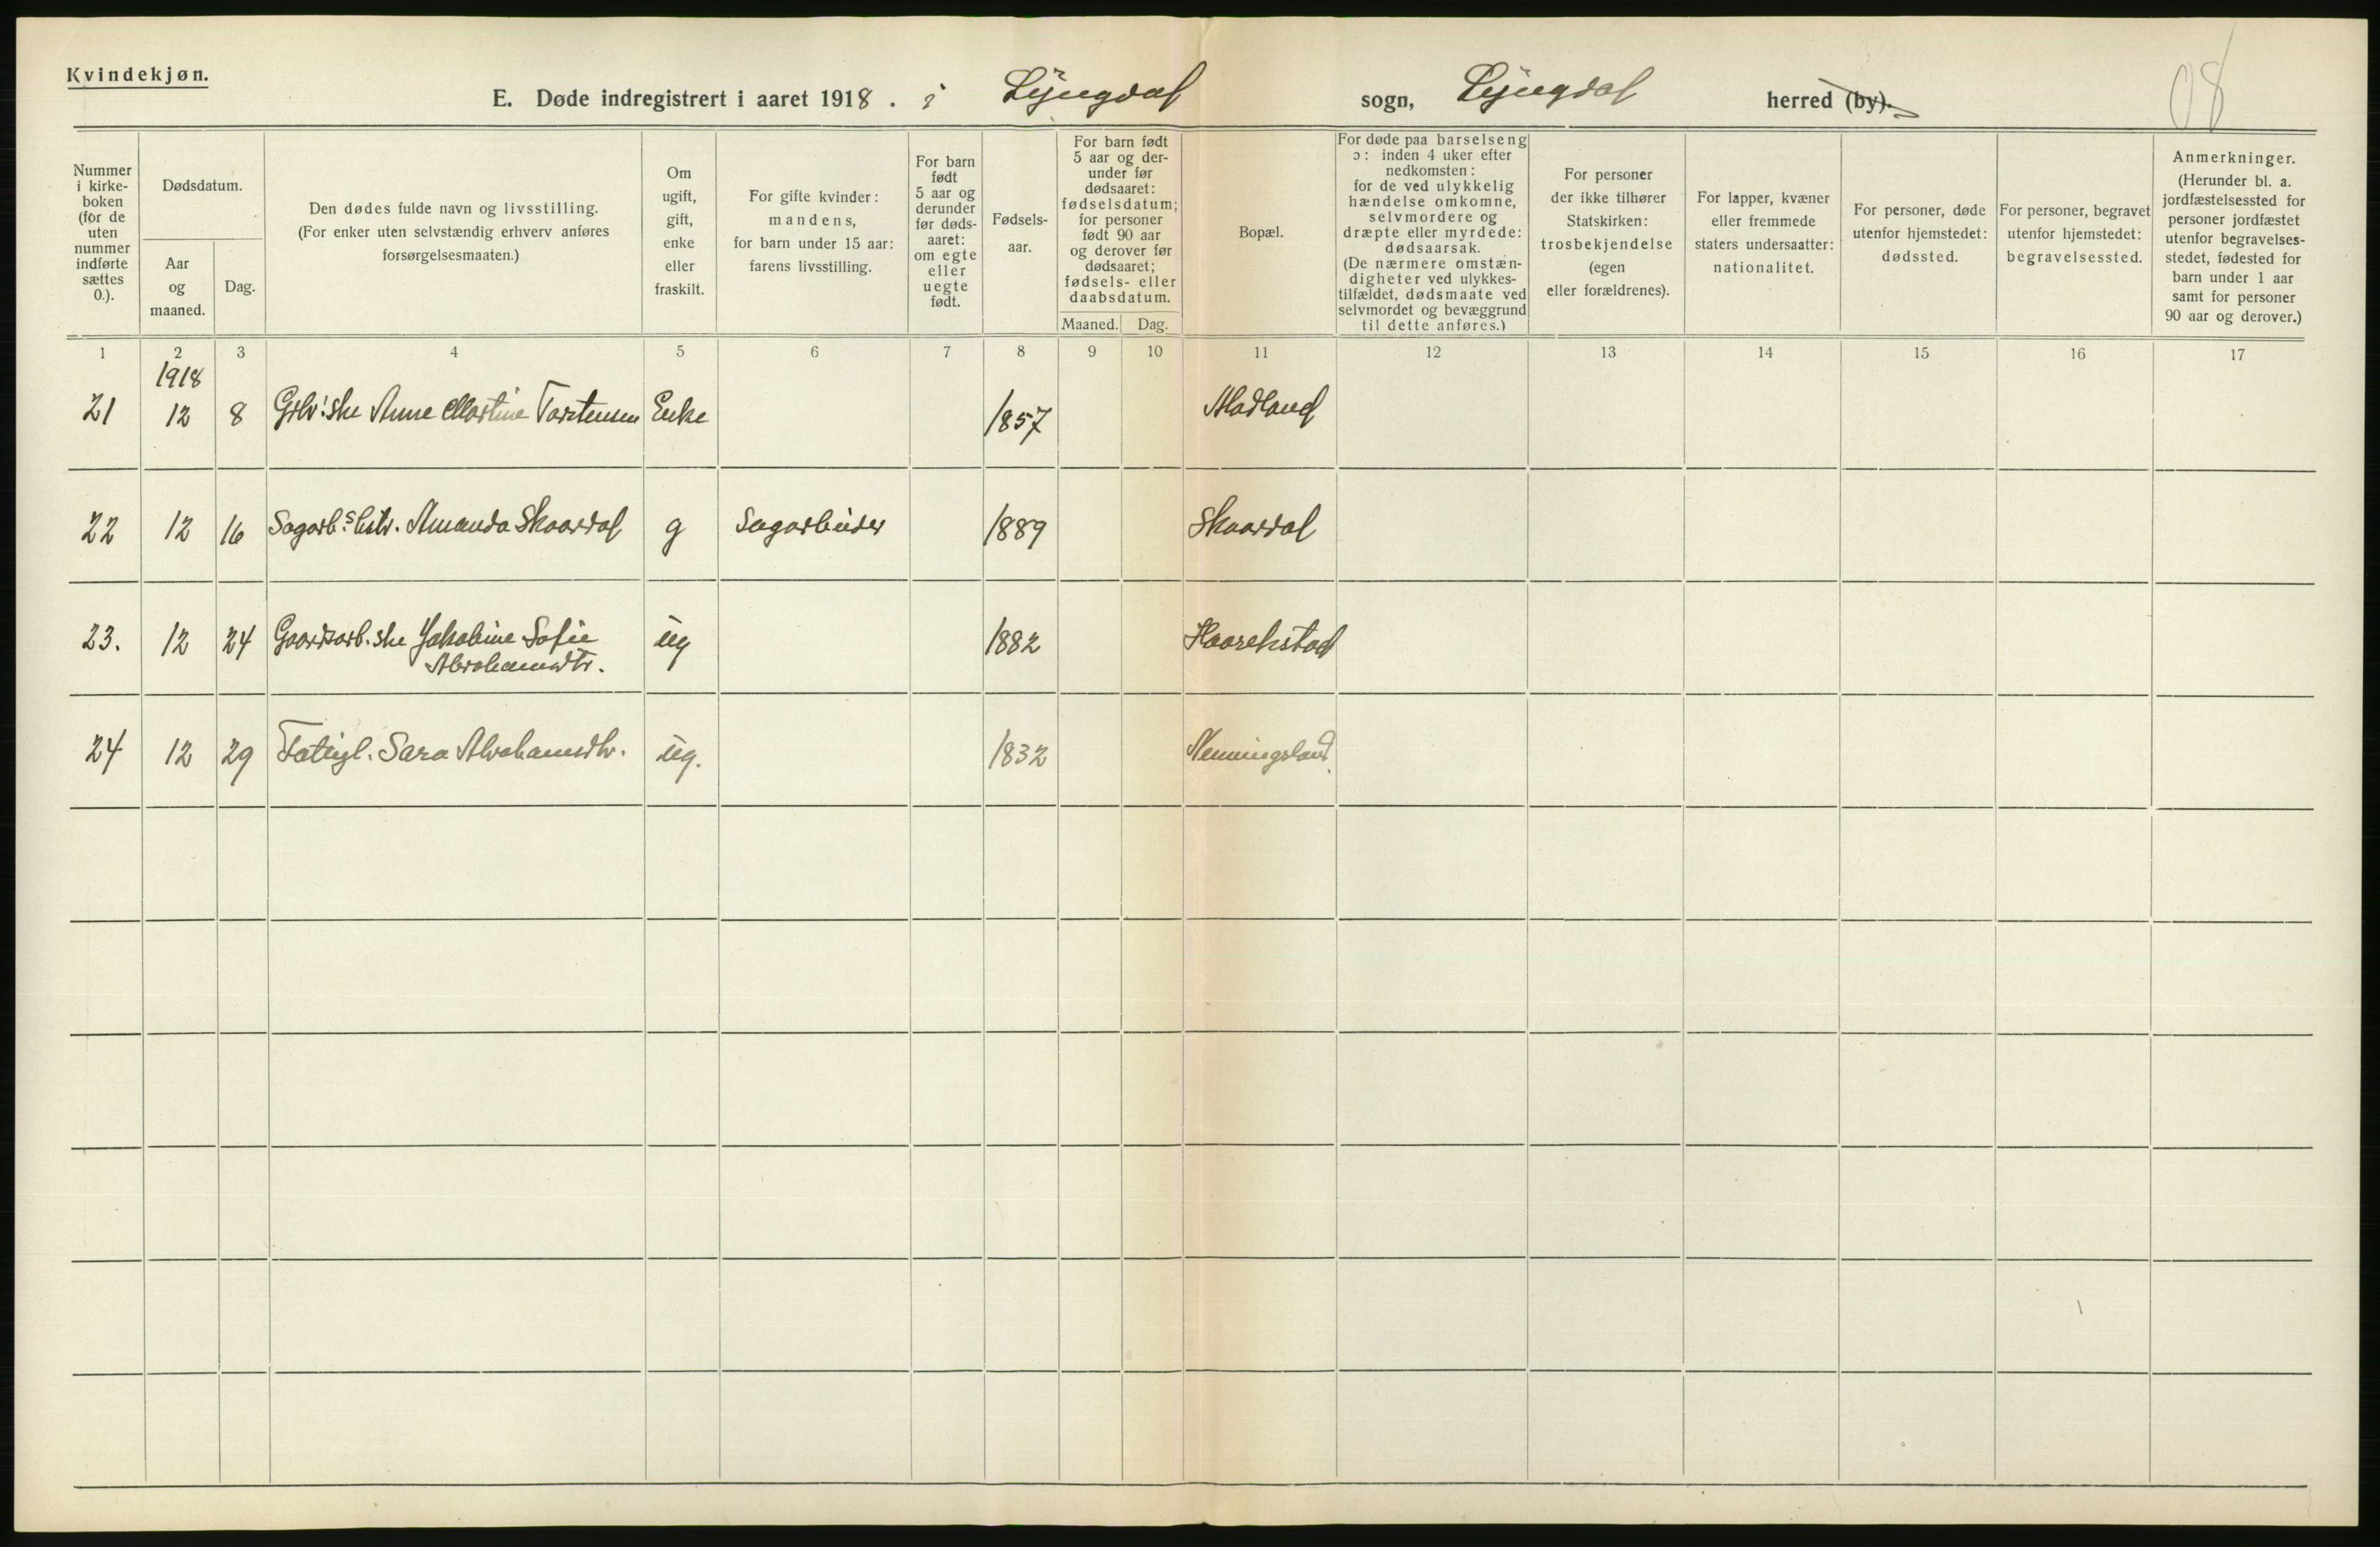 Kvindekjøn.
E. Døde indregistrert i aaret 1918. i Lyngdal sogn, Lyngdal herred (by).
08
Nummer i kirkeboken (for de uten nummer indførte sættes 0.).
Dødsdatum.
Aar og maaned.
Dag.
Den dødes fulde navn og livsstilling. (For enker uten selvstændig erhverv anføres forsørgelsesmaaten.)
Om ugift, gift, enke eller fraskilt.
For gifte kvinder: mandens, for barn under 15 aar: farens livsstilling.
For barn født 5 aar og derunder før dødsaaret: om egte eller uegte født.
Fødselsaar.
For barn født 5 aar og derunder før dødsaaret: fødselsdatum; for personer født 90 aar og derover før dødsaaret; fødsels- eller daabsdatum.
Maaned. Dag.
Bopæl.
For døde paa barselseng ɔ: inden 4 uker efter nedkomsten: for de ved ulykkelig hændelse omkomne, selvmordere og dræpte eller myrdede: dødsaarsak. (De nærmere omstændigheter ved ulykkestilfældet, dødsmaate ved selvmordet og bevæggrund til dette anføres.)
For personer der ikke tilhører Statskirken: trosbekjendelse (egen eller forældrenes).
For lapper, kvæner eller fremmede staters undersaatter: nationalitet.
For personer, døde utenfor hjemstedet: dødssted.
For personer, begravet utenfor hjemstedet: begravelsessted.
Anmerkninger. (Herunder bl. a. jordfæstelsessted for personer jordfæstet utenfor begravelsesstedet, fødested for barn under 1 aar samt for personer 90 aar og derover.)
1 2 3 4 5 6 7 8 9 10 11 12 13 14 15 16 17
1918
21 12 8 Anne Martine Torstensen Enke 1857 Aadland
22 12 16 Sagarb.s hstr. Amanda Skaardal g Sagarbeider 1889 Skaardal
23. 12 24 Gaardsarb.ske Jakobine Sofie ug 1882 Haarekstad
Abrahamsdtr.
24 12 29 Fattigl. Sara Abrahamsdtr. ug. 1832 Henningsland